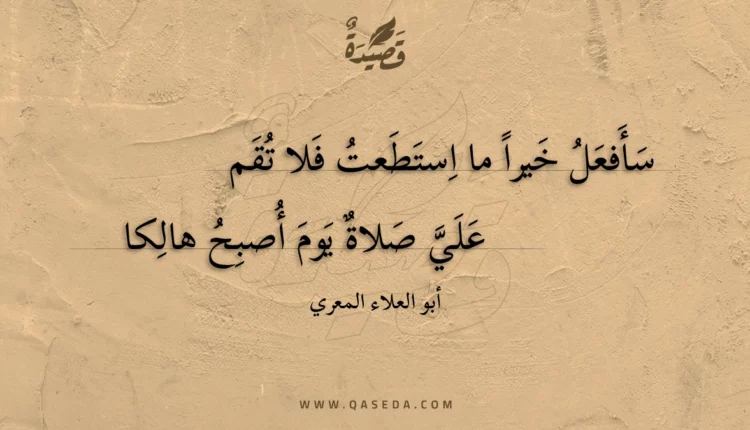 قَصِيدَةٌ
سَأَفعَلُ خَيراً ما اِستَطَعتُ فَلا تُقَم
عَلَيَّ صَلاةٌ يَومَ أُصبِحُ هالِكا
أبو العلاء المعري
WWW.QASEDA.COM